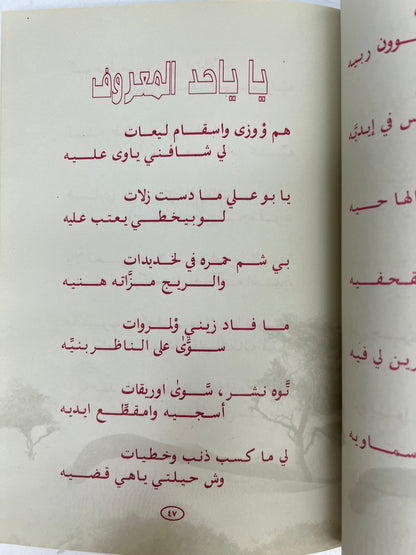 يا ياحد المعروف
هم ؤوزى واسقام ليعات
لي شافني ياوى عليه
يا بو علي ما دست زلات
لو بيخطي يعتب عليه
بي شم حمره في لخديدات
والريج مزَّاته هنيه
ما فاد زيني ؤلمروات
سوَّىٰ على الناظر بنيِّه
تَّوه نشر، سَّوىٰ اوريقات
أسجيه وامقطِّع ايديه
لي ما كسب ذنب وخطيات
وش حيلتي ياهي قضيه
٤٧
وون ربيه
س في إيديَّه
لها حبه
قحفيه
رين لي فيه
سماويه